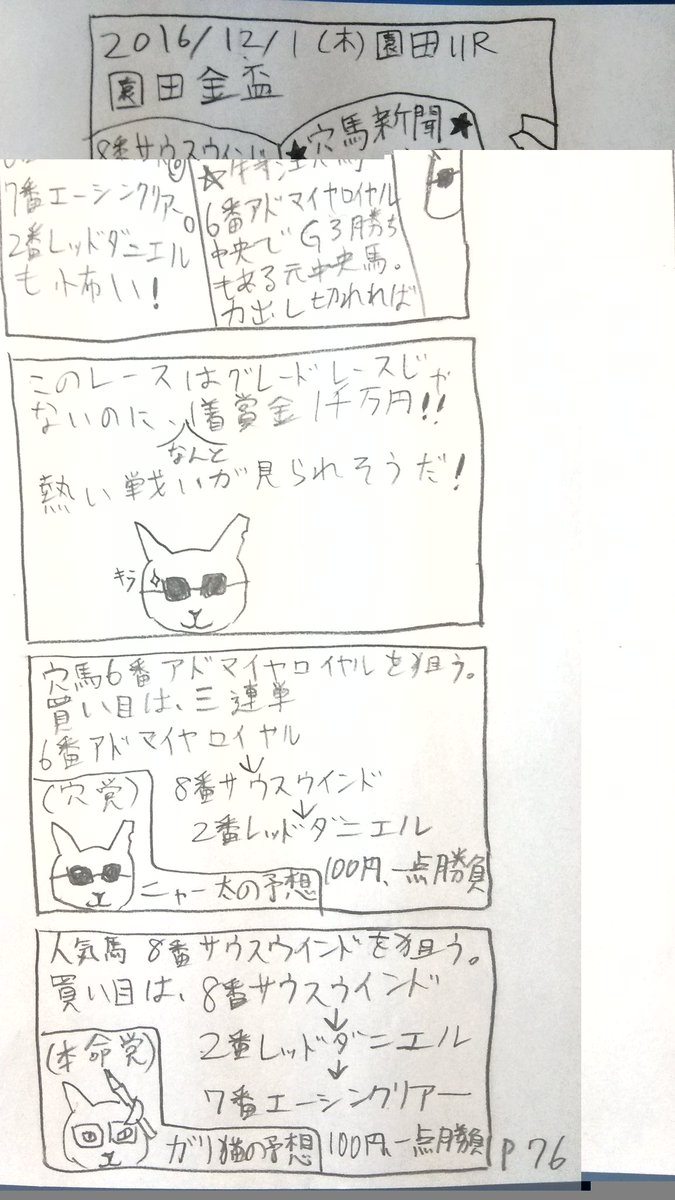 2016/12/1(木)園田11R
園田金盃
8番サウスウインド
7番エーシンクリアー。
2番レッドダニエル
も怖い!
★穴馬新聞★
6番アドマイヤロイヤル
中央でG3勝ち
もある元中央馬。
力出し切れれば
このレースはグレードレースじゃ
ないのに、1着賞金1千万円!!
なんと
熱い戦いが見られそうだ!
キラ
穴馬6番アドマイヤロイヤルを狙う。
買い目は、三連単
6番アドマイヤロイヤル
↓
8番サウスウインド
↓
2番レッドダニエル
(穴党)
ニャー太の予想
100円、一点勝負
人気馬8番サウスウインドを狙う。
買い目は、8番サウスウインド
↓
2番レッドダニエル
↓
7番エーシンクリアー
(本命党)
ガリ猫の予想
100円、一点勝負
P76